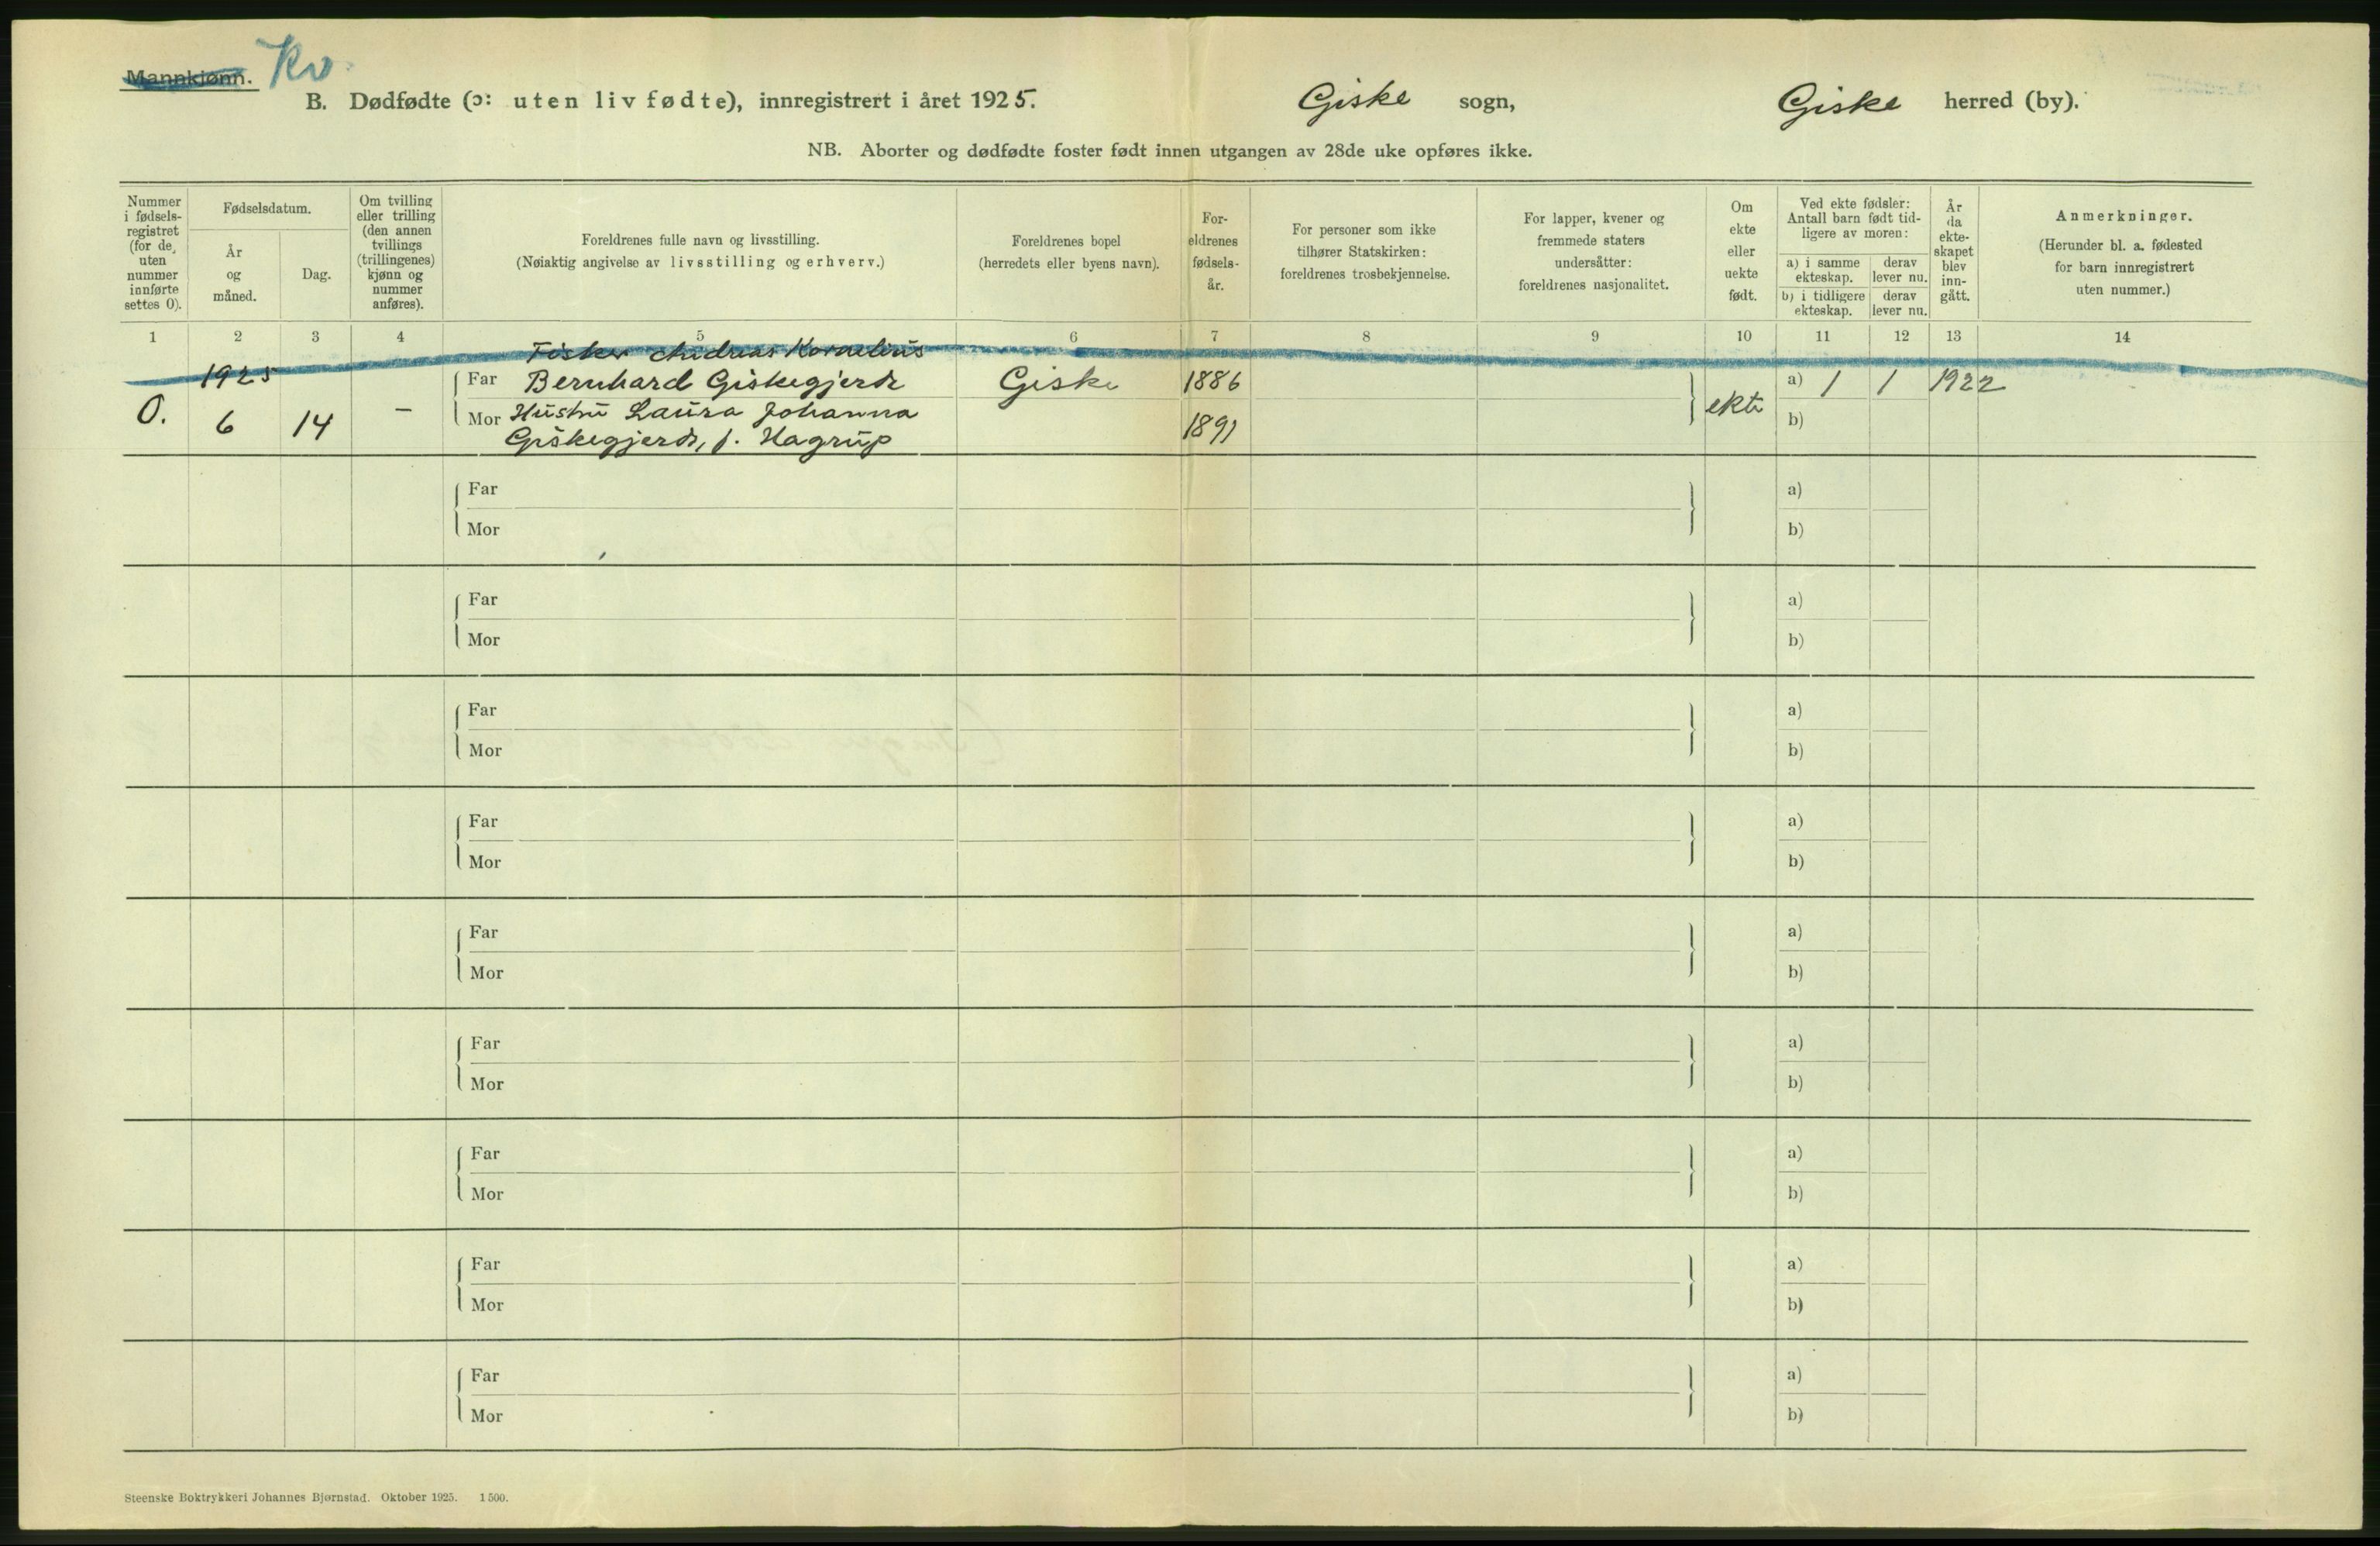 Mannkjønn. Kv.
B. Dødfødte (ɔ: uten liv fødte), innregistrert i året 1925. Giske sogn, Giske herred (by).
NB. Aborter og dødfødte foster født innen utgangen av 28de uke opføres ikke.
Nummer
i fødsels-
registret
(for de
uten
nummer
innførte
settes 0).
Fødselsdatum.
År
og
måned.
Dag.
Om tvilling
eller trilling
(den annen
tvillings
(trillingenes)
kjønn og
nummer
anføres).
Foreldrenes fulle navn og livsstilling.
(Nøiaktig angivelse av livsstilling og erhverv.)
Foreldrenes bopel
(herredets eller byens navn).
For-
eldrenes
fødsels-
år.
For personer som ikke
tilhører Statskirken:
foreldrenes trosbekjennelse.
For lapper, kvener og
fremmede staters
undersåtter:
foreldrenes nasjonalitet.
Om
ekte
eller
uekte
født.
Ved ekte fødsler:
Antall barn født tid-
ligere av moren:
a) i samme
ekteskap.
derav
lever nu.
b) i tidligere
ekteskap.
derav
lever nu.
År
da
ekte-
skapet
blev
inn-
gått.
Anmerkninger.
(Herunder bl. a. fødested
for barn innregistrert
uten nummer.)
1 2 3 4 5 6 7 8 9 10 11 12 13 14
Fisker Andreas Kornelius
1925 Far Bernhard Giskegjerde Giske 1886 a) 1 1 1922
0. 6 14 – Mor Hustru Laura Johanna ekte b)
Giskegjerde, f. Hagrup 1891
Far a)
Mor b)
Far a)
Mor b)
Far a)
Mor b)
Far a)
Mor b)
Far a)
Mor b)
Far a)
Mor b)
Far a)
Mor b)
Far a)
Mor b)
Far a)
Mor b)
Steenske Boktrykkeri Johannes Bjørnstad. Oktober 1925. 1500.